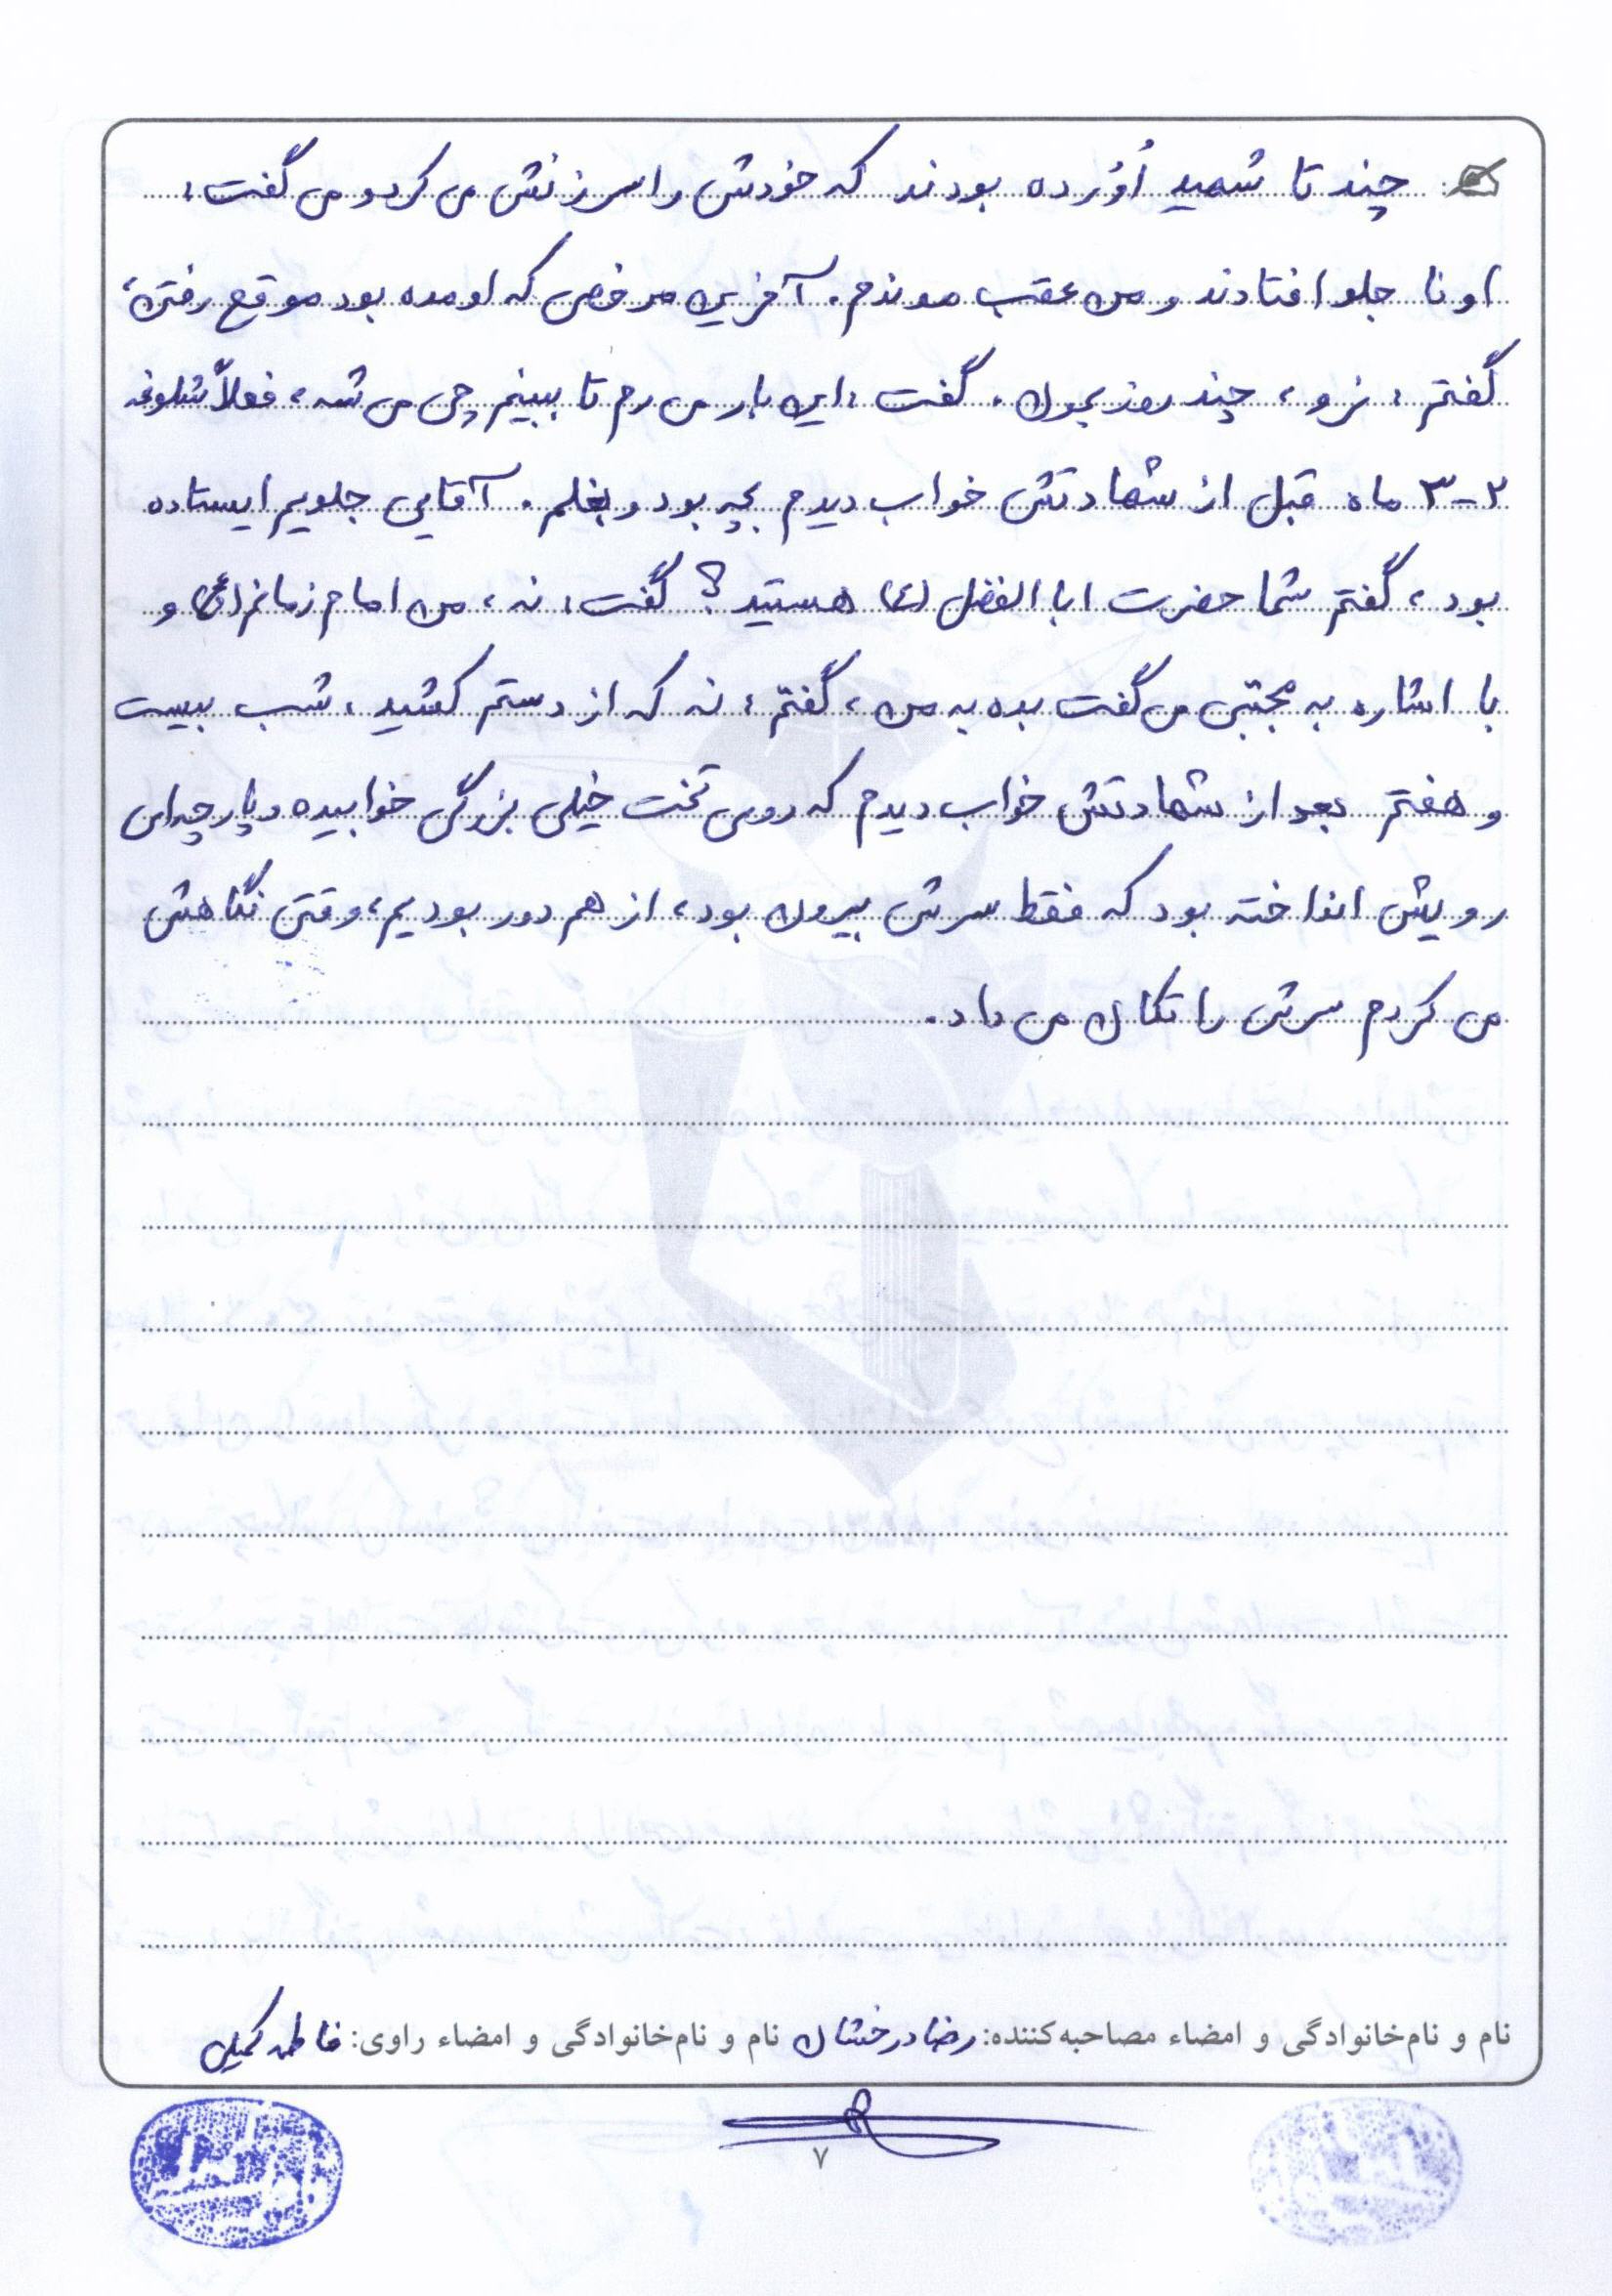 چند تا شهید اُوُرده بودند که خودش را سرزنش می کرد و می گفت:
اونا جلو افتادند و من عقب موندم. آخرین مرخصی که اومده بود موقع رفتن،
گفتم: نرو، چند روز بمون. گفت: این بار می رم تا ببینم چی می شه، فعلاً شلوغه
۲-۳ ماه قبل از شهادتش خواب دیدم بچه بود و بغلم. آقایی جلویم ایستاده
بود، گفتم شما حضرت ابا الفضل (ع) هستید؟ گفت: نه، من امام زمانم (عج) و
با اشاره به مجتبی می گفت بده به من، گفتم: نه که از دستم کشید، شب بیست
و هفتم بعد از شهادتش خواب دیدم که روی تخت خیلی بزرگی خوابیده و پارچه ای
رویش انداخته بود که فقط سرش بیرون بود، از هم دور بودیم، وقتی نگاهش
می کردم سرش را تکان می داد.
نام و نام‌خانوادگی و امضاء مصاحبه‌کننده: رضا درخشان نام و نام‌خانوادگی و امضاء راوی: فاطمه
۷